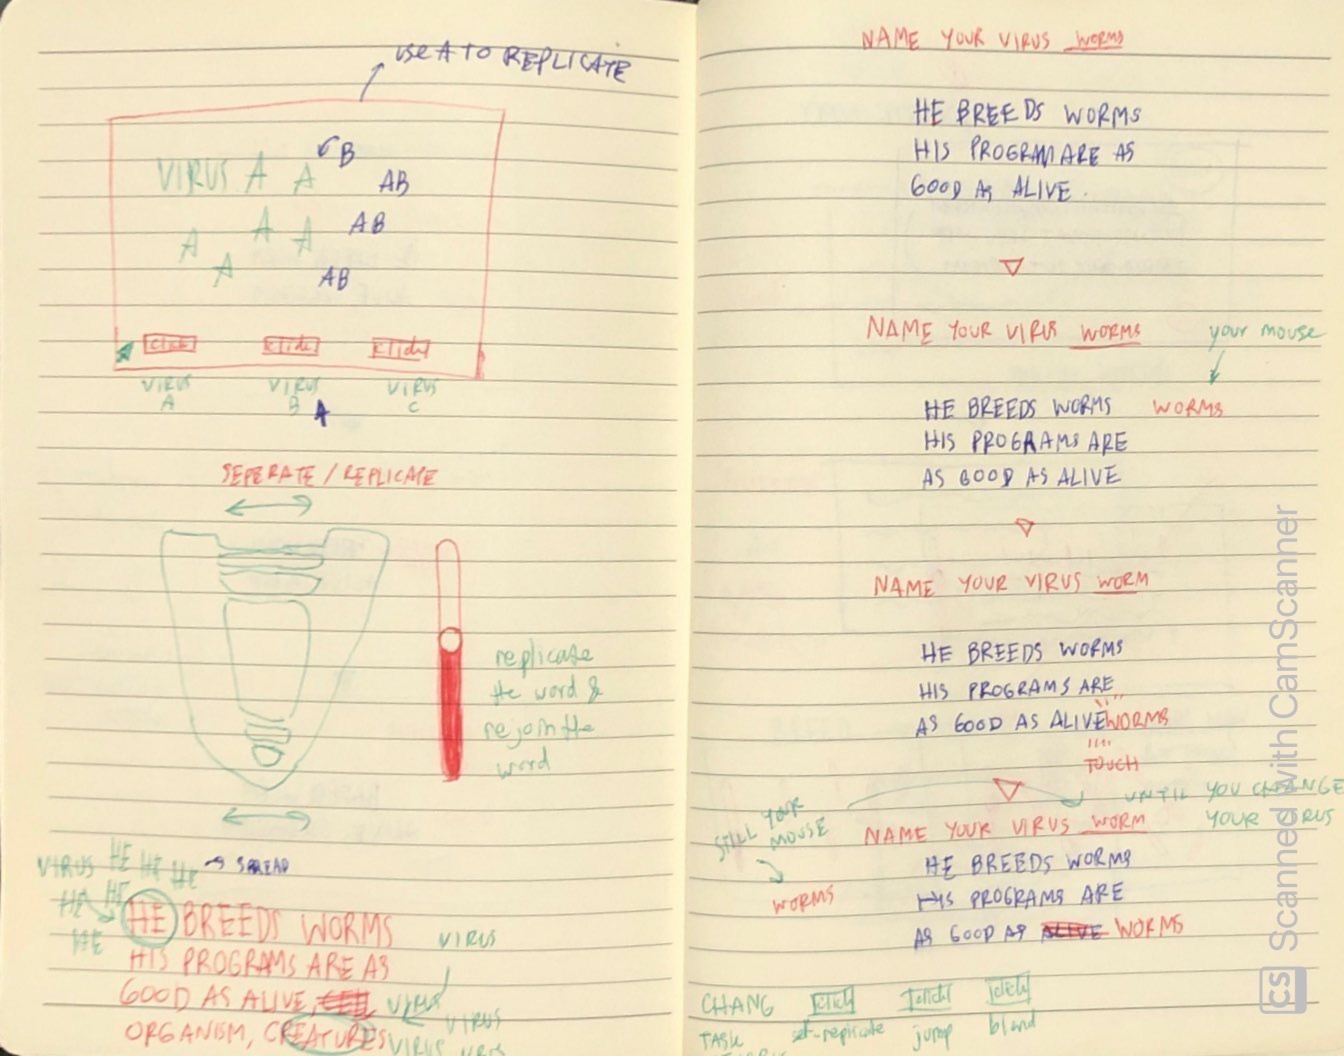 USE A TO REPLICATE
VIRUS A A B
AB
A A A AB
A AB
click click click
VIRUS A
VIRUS B
VIRUS C
A
SEPERATE / REPLICATE
replicate
the word &
rejoin the
word
VIRUS HE HE HE → SPREAD
HE HE
HE
HE BREEDS WORMS
VIRUS
HIS PROGRAMS ARE AS
GOOD AS ALIVE, VIRUS
VIRUS
ORGANISM, CREATURES VIRUS
NAME YOUR VIRUS WORMS
HE BREEDS WORMS
HIS PROGRAM ARE AS
GOOD AS ALIVE.
NAME YOUR VIRUS WORMS
your mouse
HE BREEDS WORMS WORMS
HIS PROGRAMS ARE
AS GOOD AS ALIVE
NAME YOUR VIRUS WORM
HE BREEDS WORMS
HIS PROGRAMS ARE
AS GOOD AS ALIVE WORMS
TOUCH
STILL YOUR
MOUSE
UNTIL YOU CHANGE
YOUR VIRUS
NAME YOUR VIRUS WORM
HE BREEDS WORMS
WORMS
HIS PROGRAMS ARE
AS GOOD AS ALIVE WORMS
CHANG click click click
TASK self-replicate jump blend
CS Scanned with CamScanner